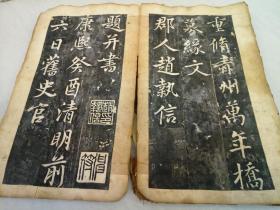 重脩肅州萬年橋
募緣文
郡人趙執信
題并書
康熙癸酉清明前
六日舊史官